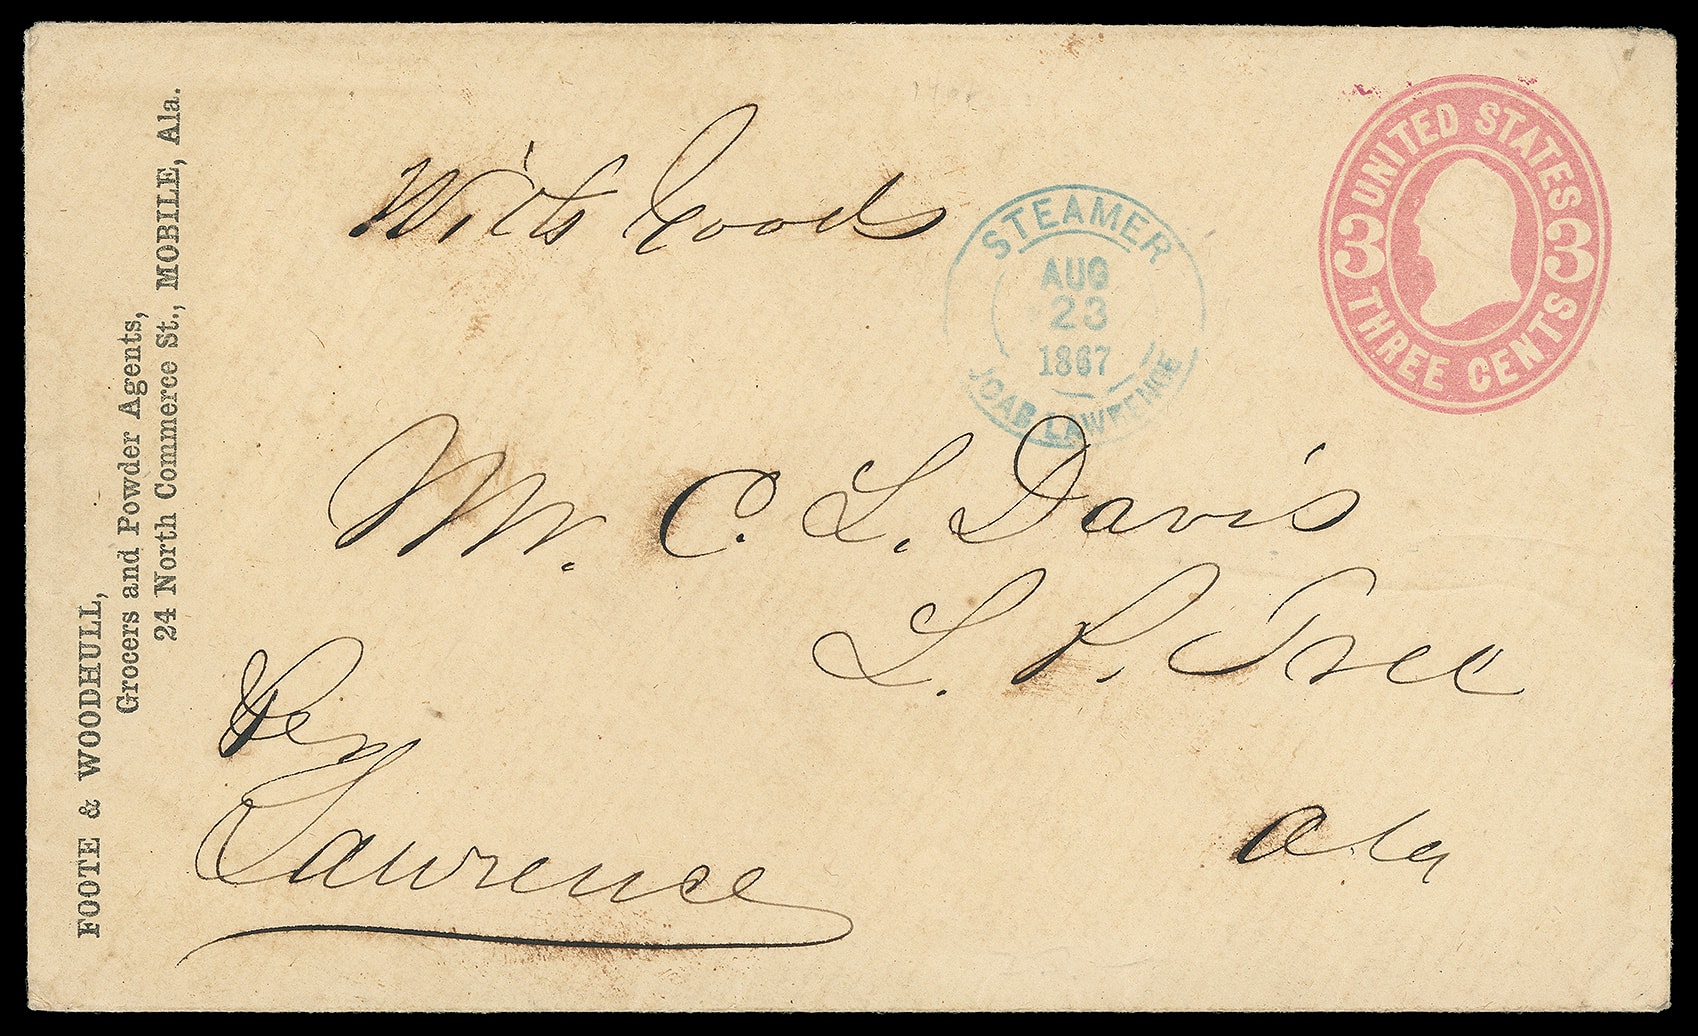 FOOTE & WOODHULL,
Grocers and Powder Agents,
24 North Commerce St., MOBILE, Ala.
With Goods
STEAMER
AUG
23
1867
JOAB LAWRENCE
UNITED STATES
3 3
THREE CENTS
Mr. C. L. Davis
L. P. Tree
Ala
Per
Lawrence